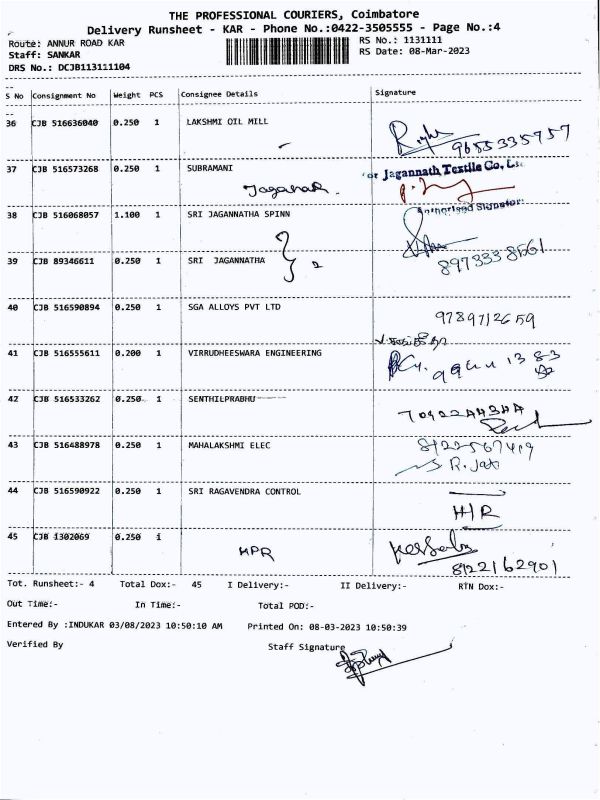 THE PROFESSIONAL COURIERS, Coimbatore
Delivery Runsheet - KAR - Phone No.:0422-3505555 - Page No.:4
Route: ANNUR ROAD KAR
RS No.: 1131111
Staff: SANKAR
RS Date: 08-Mar-2023
DRS No.: DCJB113111104
S No Consignment No Weight PCS Consignee Details Signature
36 CJB 516636040 0.250 1 LAKSHMI OIL MILL
9655335757
37 CJB 516573268 0.250 1 SUBRAMANI
or Jagannath Textile Co,
Jaganak.
38 CJB 516068057 1.100 1 SRI JAGANNATHA SPINN
Authorised Signator
39 CJB 89346611 0.250 1 SRI JAGANNATHA
2
8973338561
40 CJB 516590894 0.250 1 SGA ALLOYS PVT LTD
9789712659
41 CJB 516555611 0.200 1 VIRRUDHEESWARA ENGINEERING
42 CJB 516533262 0.250 1 SENTHILPRABHU
43 CJB 516488978 0.250 1 MAHALAKSHMI ELEC
8122567419
44 CJB 516590922 0.250 1 SRI RAGAVENDRA CONTROL
H/R
45 CJB 1302069 0.250 1
HPR
8122162901
Tot. Runsheet:- 4 Total Dox:- 45 I Delivery:- II Delivery:- RTN Dox:-
Out Time:- In Time:- Total POD:-
Entered By :INDUKAR 03/08/2023 10:50:10 AM Printed On: 08-03-2023 10:50:39
Verified By Staff Signature